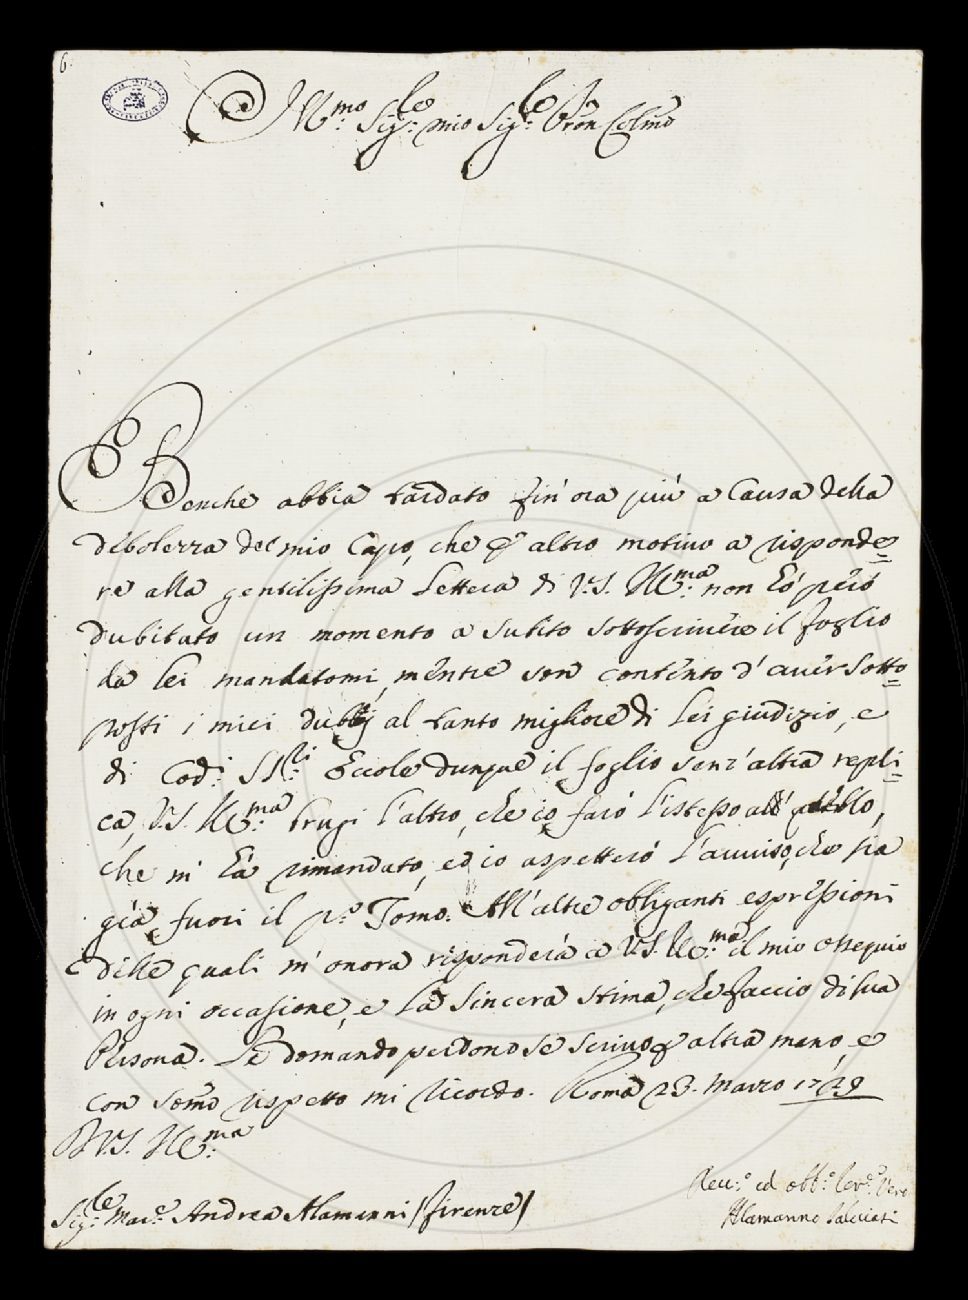 6.
Ill:mo Sig:re mio Sig:re Pron Colmo
Benche abbia tardato fin' ora più a Causa della
debolezza del mio Capo, che p altro motivo a risponde=
re alla gentilissima Lettera di V.S. Ill:ma non hò però
dubitato un momento a subito sottoscrivere il foglio
da lei mandatomi, mentre son contento d' aver sotto=
posti i miei dubbj al tanto migliore di Lei giudizio, e
di Cod: SS:ri Eccole dunque il foglio senz' altra repli=
ca, V.S. Ill:ma brugi l'altro, che io farò l'istesso all'
che mi hà rimandato, ed io aspetterò l'avviso, che sia
già fuori il p.o Tomo. All'altre obbliganti espressioni
delle quali m' onora risponderà a V.S. Ill:ma il mio ossequio
in ogni occasione, e la sincera stima, che faccio di sua
Persona. Le domando perdono se scrivo p altra mano, e
con somo rispetto mi ricordo. Roma 23. Marzo 1749
D V.S. Ill:ma
Sig:re Mar.e Andrea Alamanni (Firenze)
Dev:o ed obb:o Serv:e Vero
Alamanno Salviati